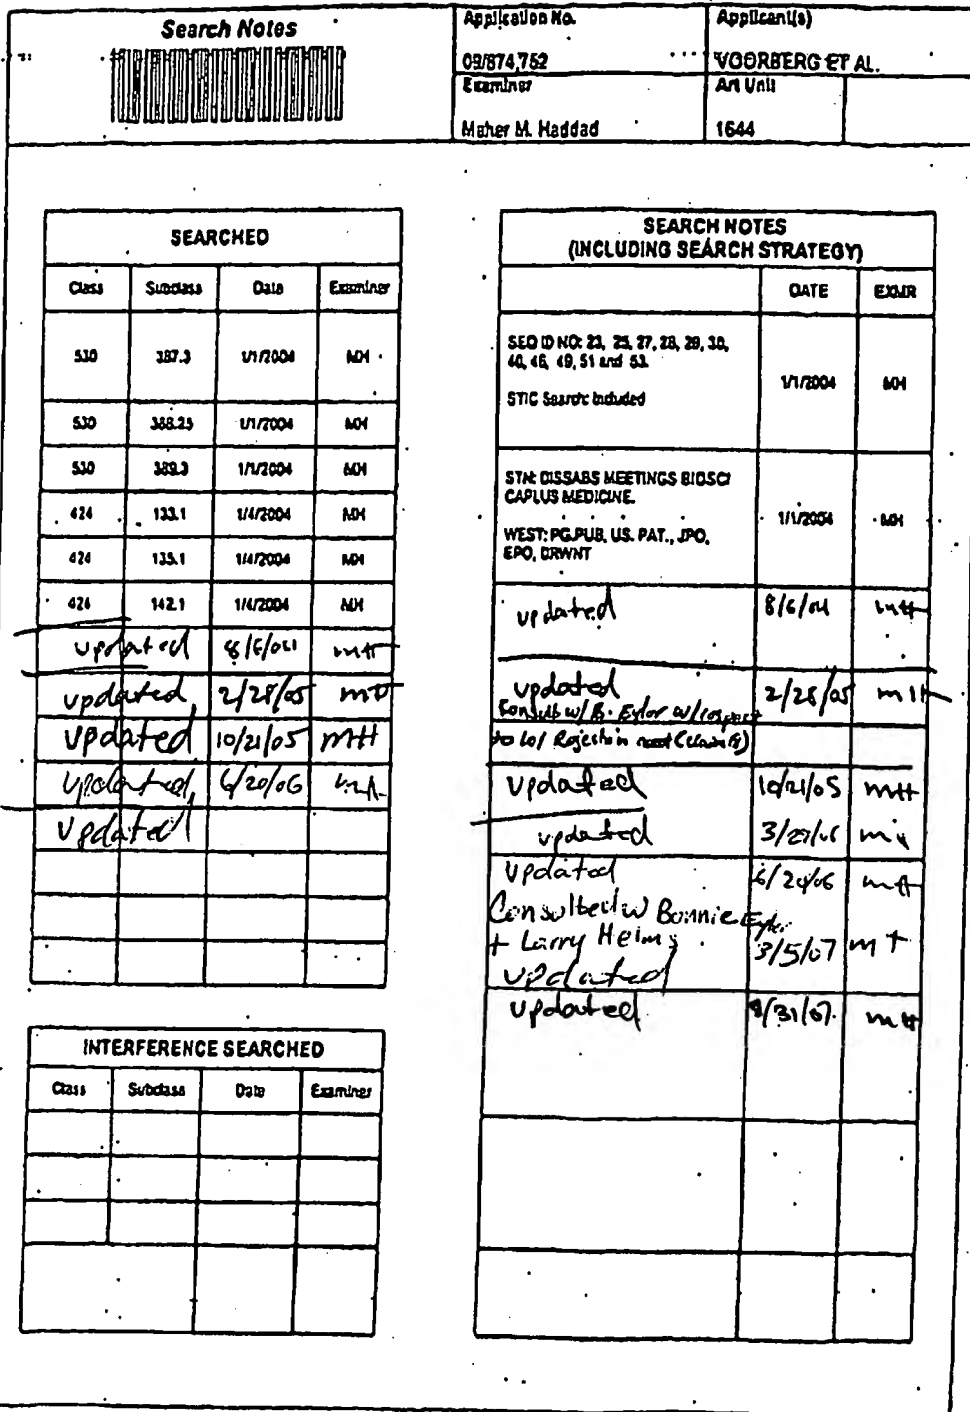 Search Notes
Application No.
Applicant(s)
09/874,752
VOORBERG ET AL.
Examiner
Art Unit
Maher M. Haddad
1644
SEARCHED
Class Subclass Date Examiner
530 387.3 1/1/2004 MH
530 388.25 1/1/2004 MH
530 389.3 1/1/2004 MH
424 133.1 1/4/2004 MH
424 135.1 1/4/2004 MH
424 142.1 1/4/2004 MH
updated 8/6/04 MH
updated 2/28/05 MH
updated 10/21/05 MH
updated 6/20/06 MH
updated
INTERFERENCE SEARCHED
Class Subclass Date Examiner
SEARCH NOTES
(INCLUDING SEARCH STRATEGY)
DATE EXMR
SEQ ID NO: 23, 25, 27, 28, 29, 30,
40, 46, 49, 51 and 53.
STIC Search Included
1/1/2004 MH
STN: DISSABS MEETINGS BIOSCI
CAPLUS MEDICINE.
WEST: PG.PUB, US. PAT., JPO,
EPO, DRWNT
1/1/2004 MH
updated 8/6/04 MH
updated 2/28/05 MH
Consult w/ B. Eyler w/ respect
to Rejection
updated 10/21/05 MH
updated 3/27/06 MH
updated 6/20/06 MH
Consulted w Bonnie Eyler
+ Larry Helms 3/5/07 MH
updated
updated 8/31/07 MH